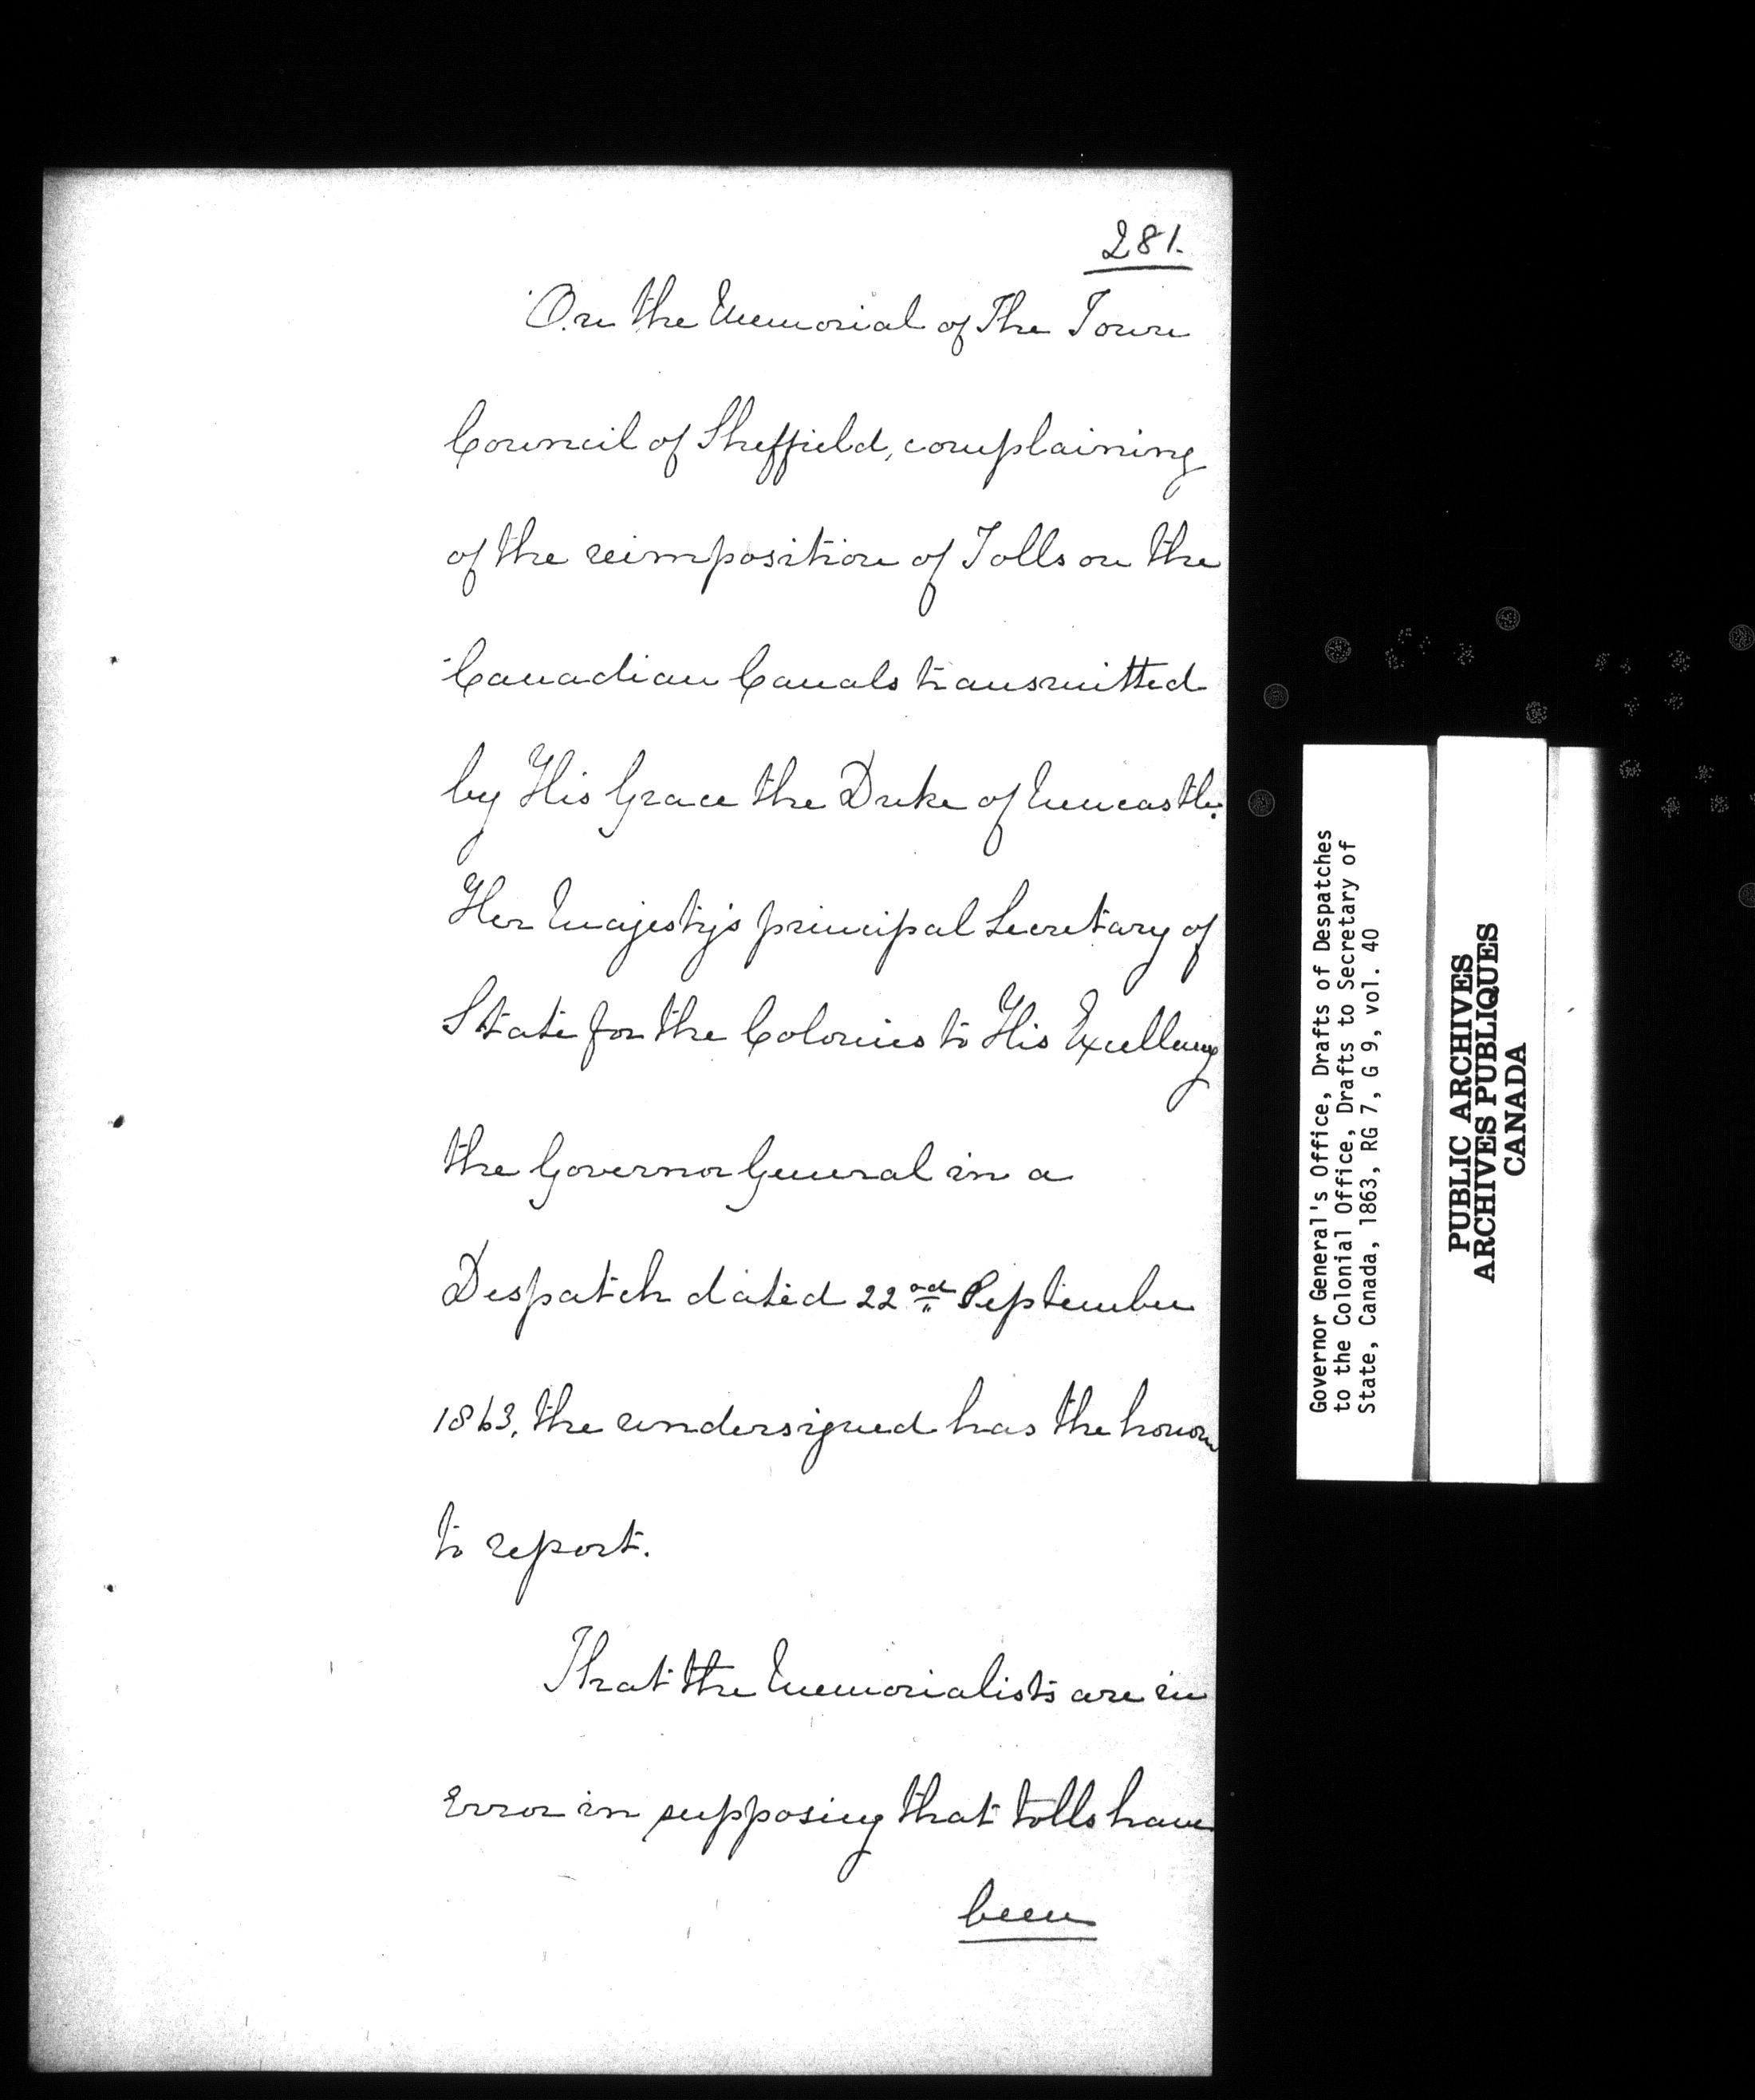 281.
On the Memorial of The Town
Council of Sheffield, complaining
of the reimposition of Tolls on the
Canadian Canals transmitted
by His Grace the Duke of Newcastle.
Her Majesty's principal Secretary of
State for the Colonies to His Excellency
the Governor General in a
Despatch dated 22nd September
1863, the undersigned has the honour
to report.
That the Memorialists are in
Error in supposing that tolls have
been
Governor General's Office, Drafts of Despatches
to the Colonial Office, Drafts to Secretary of
State, Canada, 1863, RG 7, G 9, vol. 40
PUBLIC ARCHIVES
ARCHIVES PUBLIQUES
CANADA